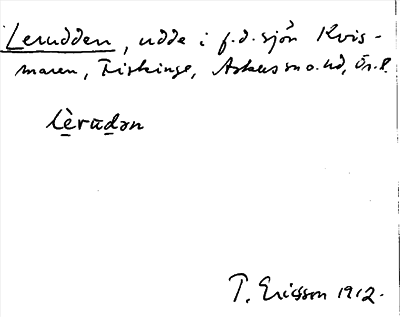 Lerudden, udde i f.d. sjön Kvis-
maren, Fiskinge, Askers sn o. hd, Ör. l.
lèrudən
T. Ericsson 1912.